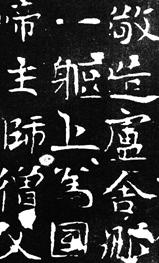 敬造盧舍那
一軀上為國
帝主師僧父